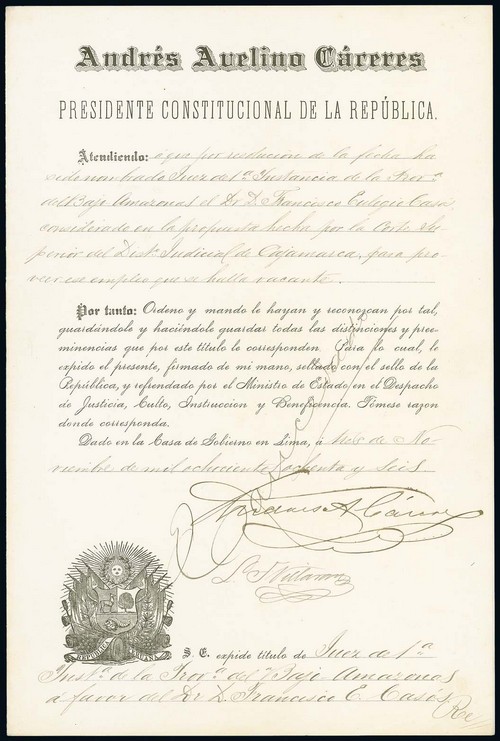 Andrés Avelino Cáceres
PRESIDENTE CONSTITUCIONAL DE LA REPÚBLICA.
Atendiendo: á que por resolucion de la fecha ha
sido nombrado Juez de 1ª Instancia de la Prov.ª
del Bajo Amazonas el Dr. D. Francisco Eulogio Casós,
considerado en la propuesta hecha por la Corte Su-
perior del Dist.º Judicial de Cajamarca, para pro-
veer ese empleo que se halla vacante.
Por tanto: Ordeno y mando le hayan y reconozcan por tal,
guardándole y haciéndole guardar todas las distinciones y pree-
minencias que por este título le corresponden. Para lo cual, le
expido el presente, firmado de mi mano, sellado con el sello de la
República, y refrendado por el Ministro de Estado, en el Despacho
de Justicia, Culto, Instruccion y Beneficencia. Tómese razon
donde corresponda.
Dado en la Casa de Gobierno en Lima, á tres de No-
viembre de mil ochocientos ochenta y seis.
Andrés A. Cáceres
REPUBLICA PERUANA
S. E. expide título de Juez de 1ª
Inst.ª de la Prov.ª del Bajo Amazonas
á favor del Dr. D. Francisco E. Casós